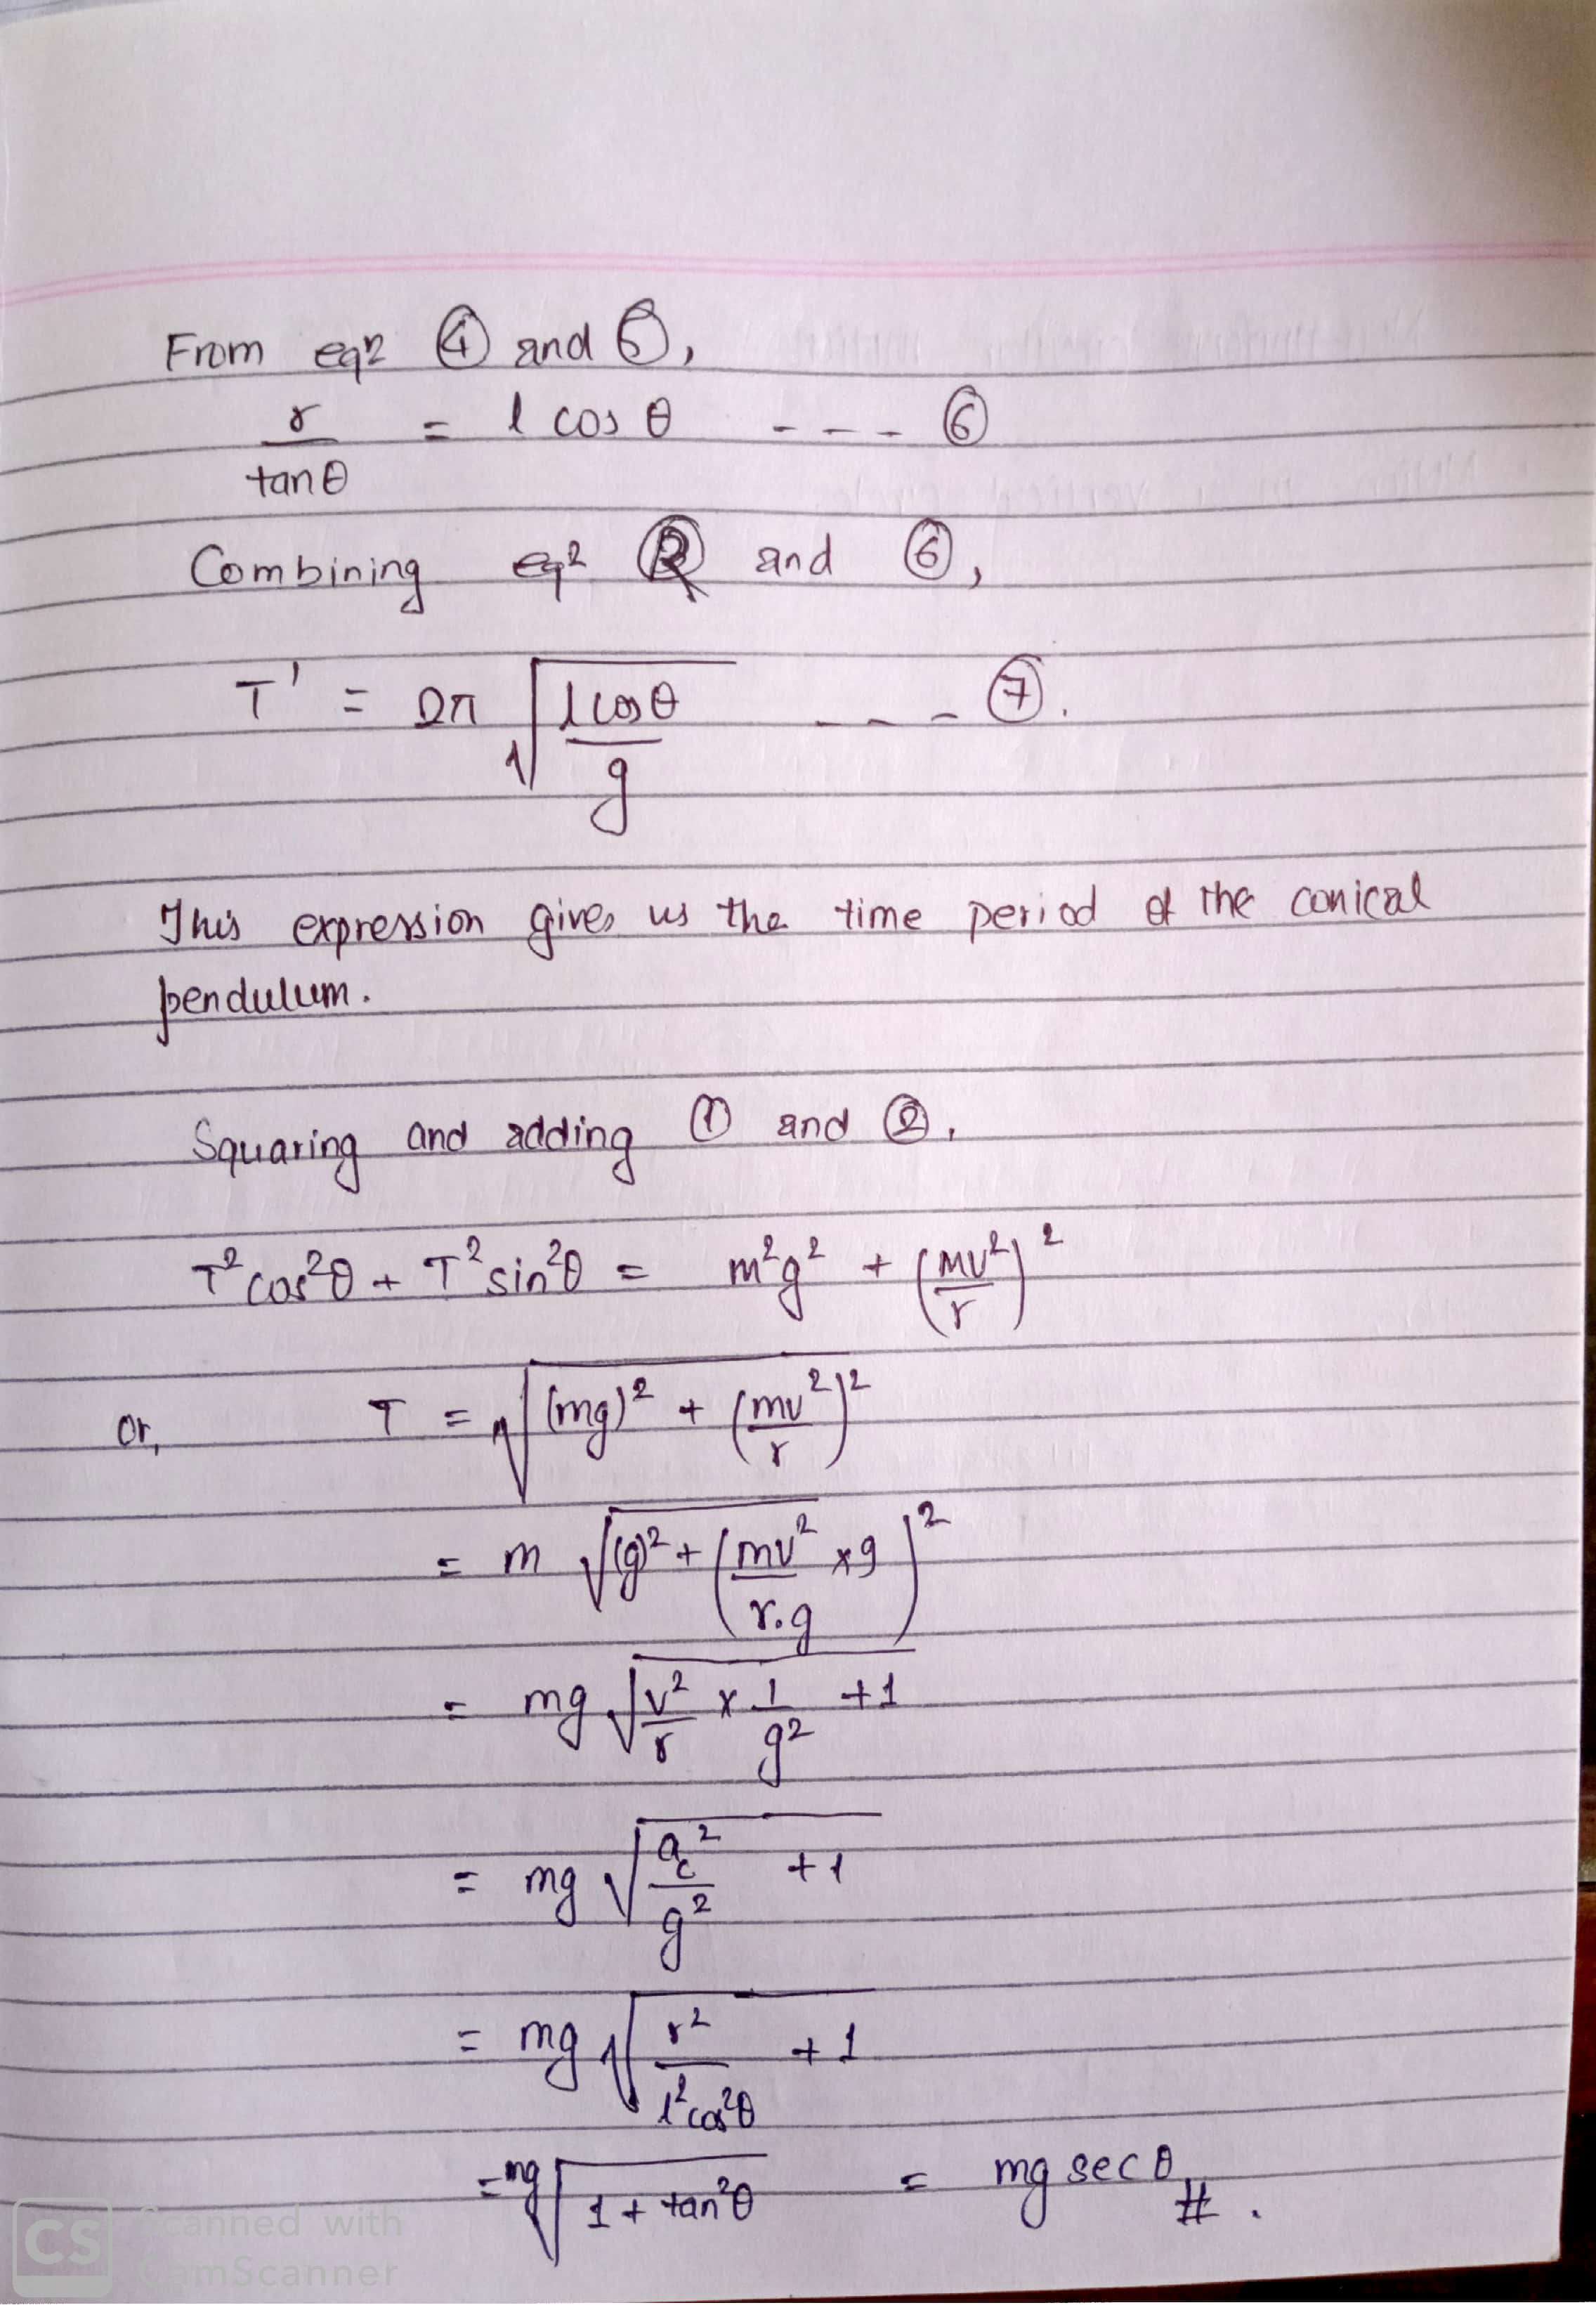 From eqn ④ and ⑤,
r/tanθ = l cos θ - - - ⑥
Combining eqn and ⑥,
T' = 2π √(l cosθ/g) - - - ⑦.
This expression gives us the time period of the conical
pendulum.
Squaring and adding ① and ②,
T² cos²θ + T² sin²θ = m²g² + (mv²/r)²
or, T = √((mg)² + (mv²/r)²)
= m √((g)² + (mv²/r.g × g)²)
= mg √(v²/r × 1/g² + 1)
= mg √(a_c²/g² + 1)
= mg √(r²/l²cos²θ + 1)
= mg √(1 + tan²θ) = mg sec θ #.
CS Scanned with
CamScanner